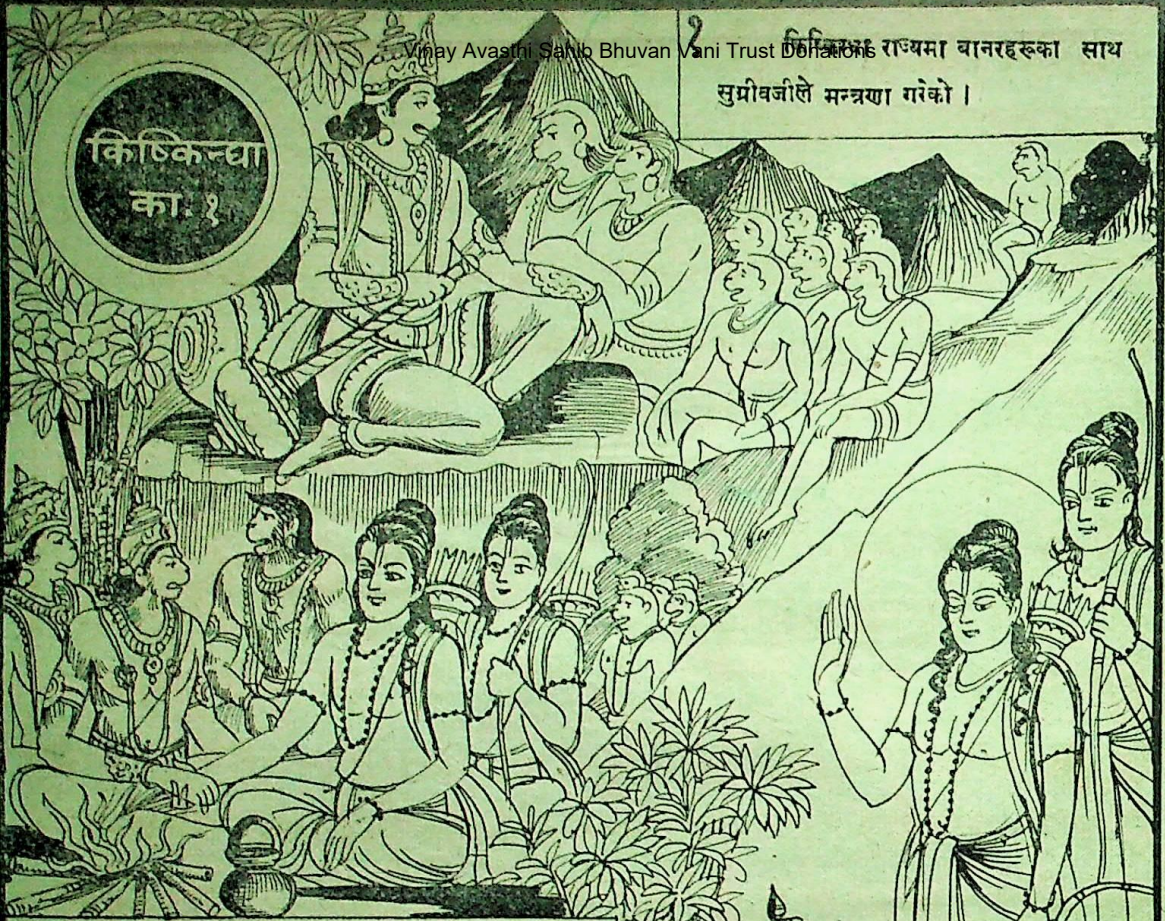 Vinay Avasthi Sahib Bhuvan Vani Trust Donations
१
राज्यमा बानरहरूका साथ
सुग्रीवजीले मन्त्रणा गरेको ।
किष्किन्धा
का. १